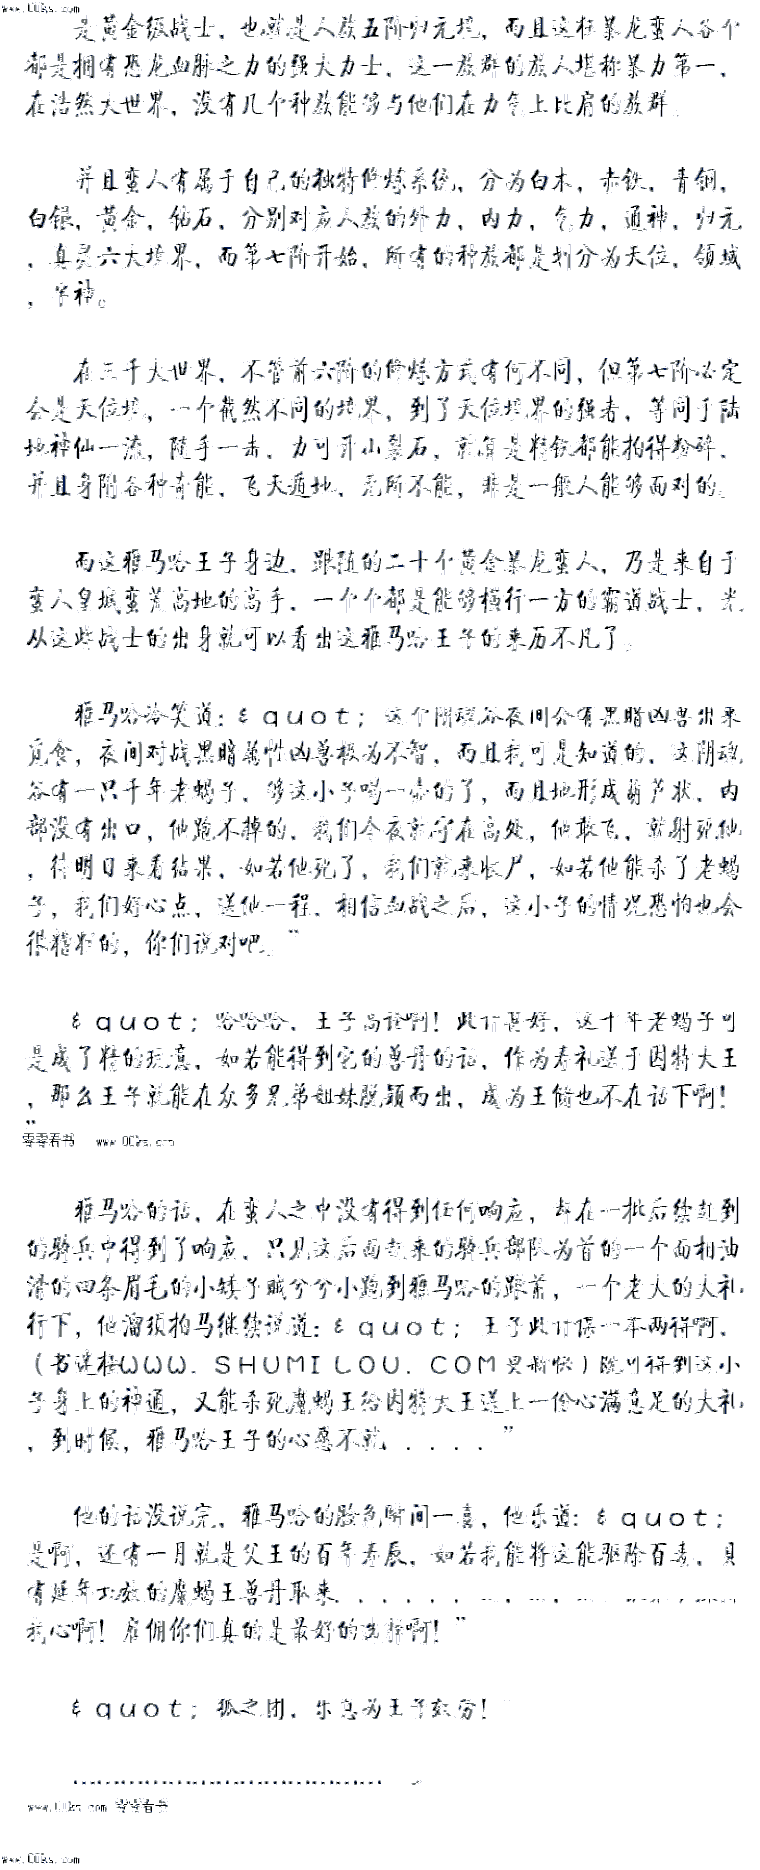 www.00ks.com
是黄金级战士，也就是人族五阶归元境，而且这种暴龙蛮人各个
都是拥有恐龙血脉之力的强大力士，这一族群的族人堪称暴力第一，
在浩然大世界，没有几个种族能够与他们在力气上比肩的族群。
并且蛮人有属于自己的独特修炼系统，分为白木，赤铁，青铜，
白银，黄金，钻石，分别对应人族的外力，内力，气力，通神，归元
，真灵六大境界，而第七阶开始，所有的种族都是划分为天位，领域
，宇神。
在三千大世界，不管前六阶的修炼方式有何不同，但第七阶必定
会是天位境，一个截然不同的境界，到了天位境界的强者，等同于陆
地神仙一流，随手一击，力可开山裂石，就算是精铁都能拍得粉碎，
并且身附各种奇能，飞天遁地，无所不能，非是一般人能够面对的。
而这雅马哈王子身边，跟随的二十个黄金暴龙蛮人，乃是来自于
蛮人皇城蛮荒高地的高手，一个个都是能够横行一方的霸道战士，光
从这些战士的出身就可以看出这雅马哈王子的来历不凡了。
雅马哈冷笑道：&quot；这个阴魂谷夜间会有黑暗凶兽出来
觅食，夜间对战黑暗属性凶兽极为不智，而且我可是知道的，这阴魂
谷有一只千年老蝎子，够这小子喝一壶的了，而且地形成葫芦状，内
部没有出口，他跑不掉的，我们今夜就守在高处，他敢飞，就射死他
，待明日来看结果，如若他死了，我们就来收尸，如若他能杀了老蝎
子，我们好心点，送他一程，相信血战之后，这小子的情况恐怕也会
很糟糕的，你们说对吧。”
&quot；哈哈哈，王子高论啊！此计甚好，这千年老蝎子可
是成了精的玩意，如若能得到它的兽丹的话，作为寿礼送于因特大王
，那么王子就能在众多兄弟姐妹脱颖而出，成为王储也不在话下啊！
”
零零看书 www.00ks.com
雅马哈的话，在蛮人之中没有得到任何响应，却在一批后续赶到
的骑兵中得到了响应，只见这后面赶来的骑兵部队为首的一个面相油
滑的四条眉毛的小矮子贼兮兮小跑到雅马哈的跟前，一个老大的大礼
行下，他溜须拍马继续说道：&quot；王子此计源一本两得啊，
（书迷楼WWW．SHUMILOU．COM更新快）既可得到这小
子身上的神通，又能杀死魔蝎王给因特大王送上一份心满意足的大礼
，到时候，雅马哈王子的心愿不就．．．．．”
他的话没说完，雅马哈的脸色瞬间一喜，他乐道：&quot；
是啊，还有一月就是父王的百年寿辰，如若我能将这能驱除百毒，具
有延年功效的魔蝎王兽丹取来．．．．．．
我心啊！雇佣你们真的是最好的选择啊！”
&quot；狐之团，乐意为王子效劳！”
www.00ks.com 零零看书
www.00ks.com